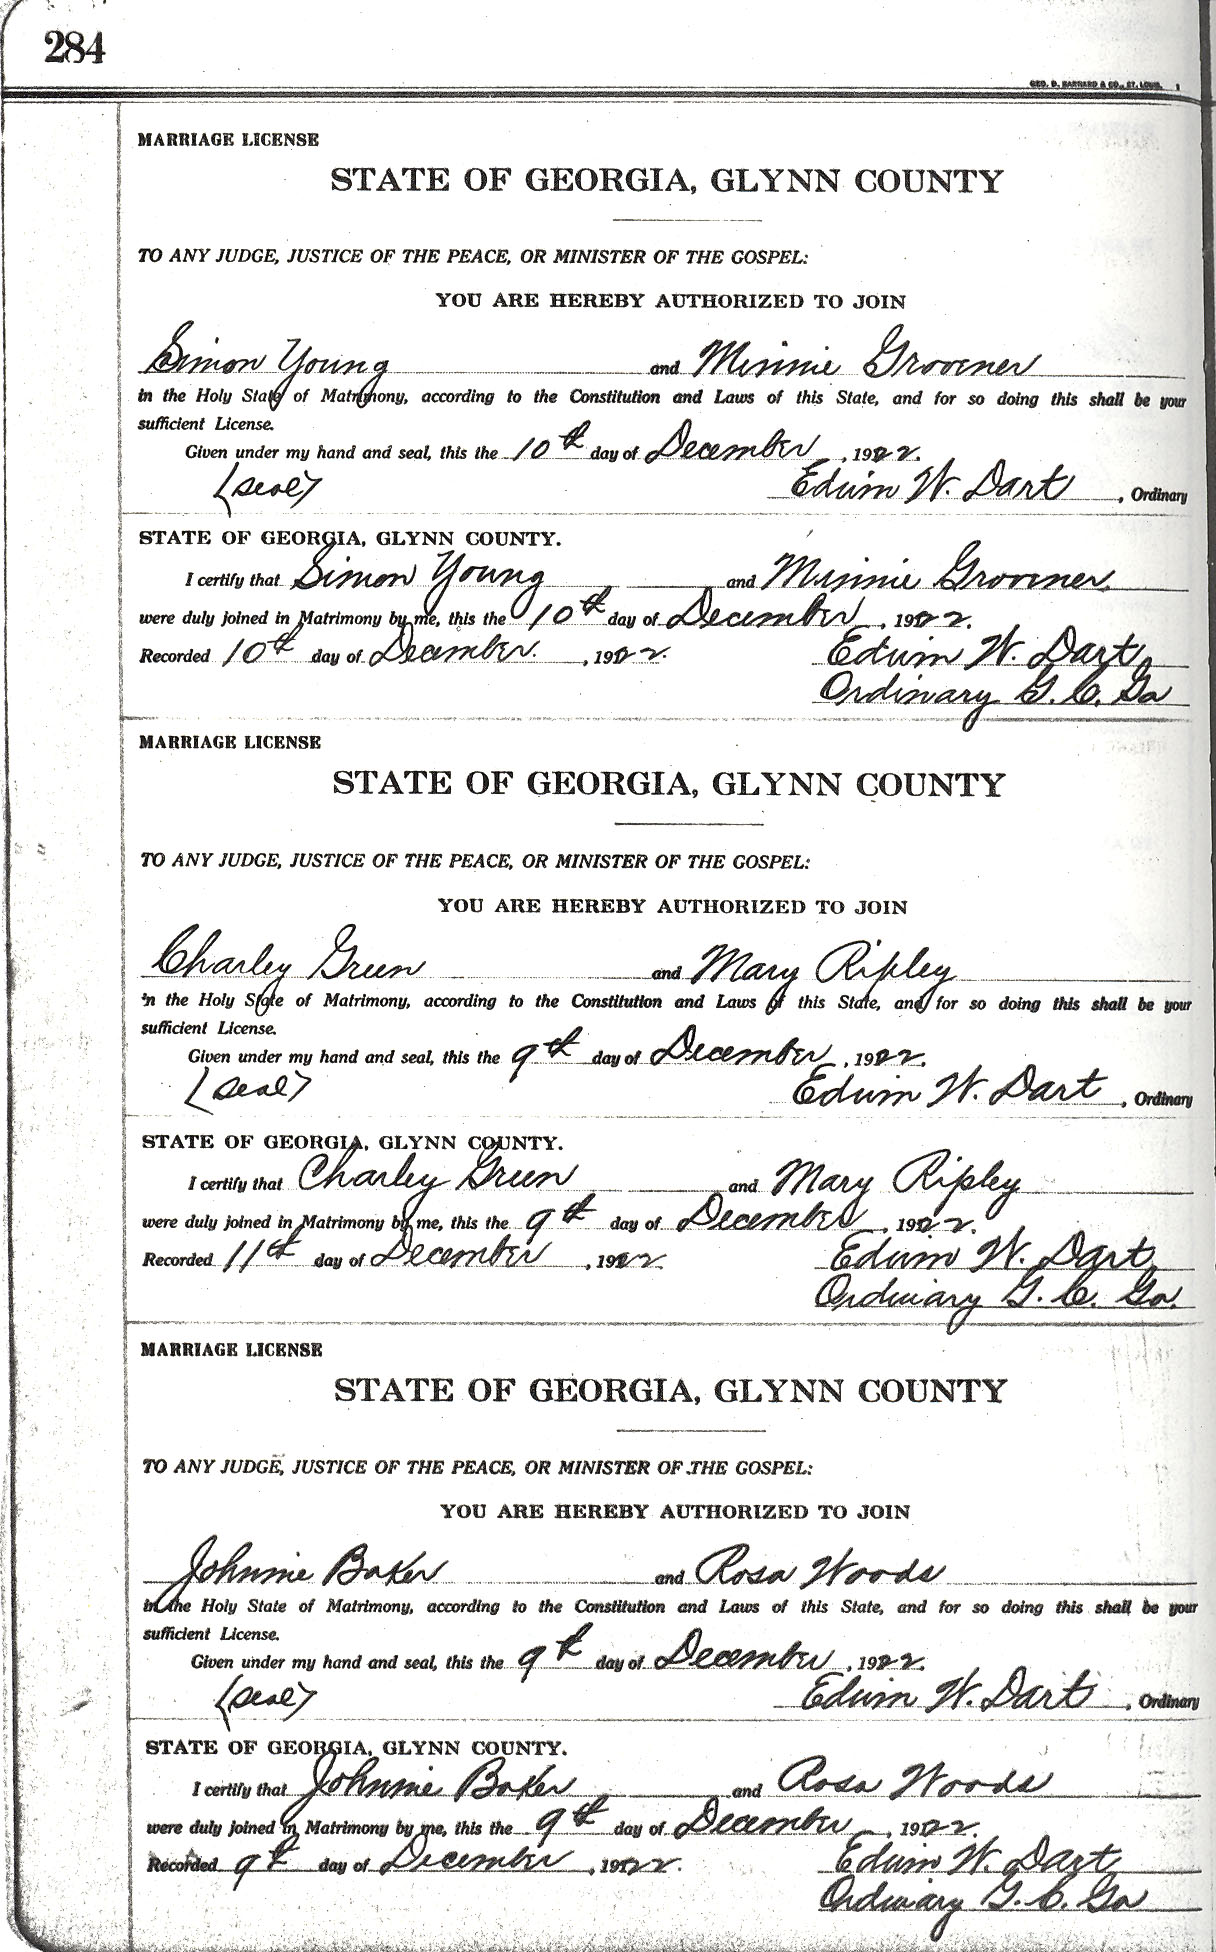 284
GEO. D. BARNARD & CO., ST. LOUIS.
MARRIAGE LICENSE
STATE OF GEORGIA, GLYNN COUNTY
TO ANY JUDGE, JUSTICE OF THE PEACE, OR MINISTER OF THE GOSPEL:
YOU ARE HEREBY AUTHORIZED TO JOIN
Simon Young and Minnie Groovner
in the Holy State of Matrimony, according to the Constitution and Laws of this State, and for so doing this shall be your
sufficient License.
Given under my hand and seal, this the 10th day of December, 1922.
(seal) Edwin W. Dart, Ordinary
STATE OF GEORGIA, GLYNN COUNTY.
I certify that Simon Young and Minnie Groovner,
were duly joined in Matrimony by me, this the 10th day of December, 1922.
Recorded 10th day of December. , 1922. Edwin W. Dart,
Ordinary G. C. Ga
MARRIAGE LICENSE
STATE OF GEORGIA, GLYNN COUNTY
TO ANY JUDGE, JUSTICE OF THE PEACE, OR MINISTER OF THE GOSPEL:
YOU ARE HEREBY AUTHORIZED TO JOIN
Charley Green and Mary Ripley
in the Holy State of Matrimony, according to the Constitution and Laws of this State, and for so doing this shall be your
sufficient License.
Given under my hand and seal, this the 9th day of December, 1922.
(seal) Edwin W. Dart, Ordinary
STATE OF GEORGIA, GLYNN COUNTY.
I certify that Charley Green and Mary Ripley
were duly joined in Matrimony by me, this the 9th day of December, 1922.
Recorded 11th day of December, 1922. Edwin W. Dart
Ordinary G. C. Ga.
MARRIAGE LICENSE
STATE OF GEORGIA, GLYNN COUNTY
TO ANY JUDGE, JUSTICE OF THE PEACE, OR MINISTER OF THE GOSPEL:
YOU ARE HEREBY AUTHORIZED TO JOIN
Johnnie Baker and Rosa Woods
in the Holy State of Matrimony, according to the Constitution and Laws of this State, and for so doing this shall be your
sufficient License.
Given under my hand and seal, this the 9th day of December, 1922.
(seal) Edwin W. Dart, Ordinary
STATE OF GEORGIA, GLYNN COUNTY.
I certify that Johnnie Baker and Rosa Woods
were duly joined in Matrimony by me, this the 9th day of December, 1922.
Recorded 9th day of December, 1922. Edwin W. Dart
Ordinary G. C. Ga